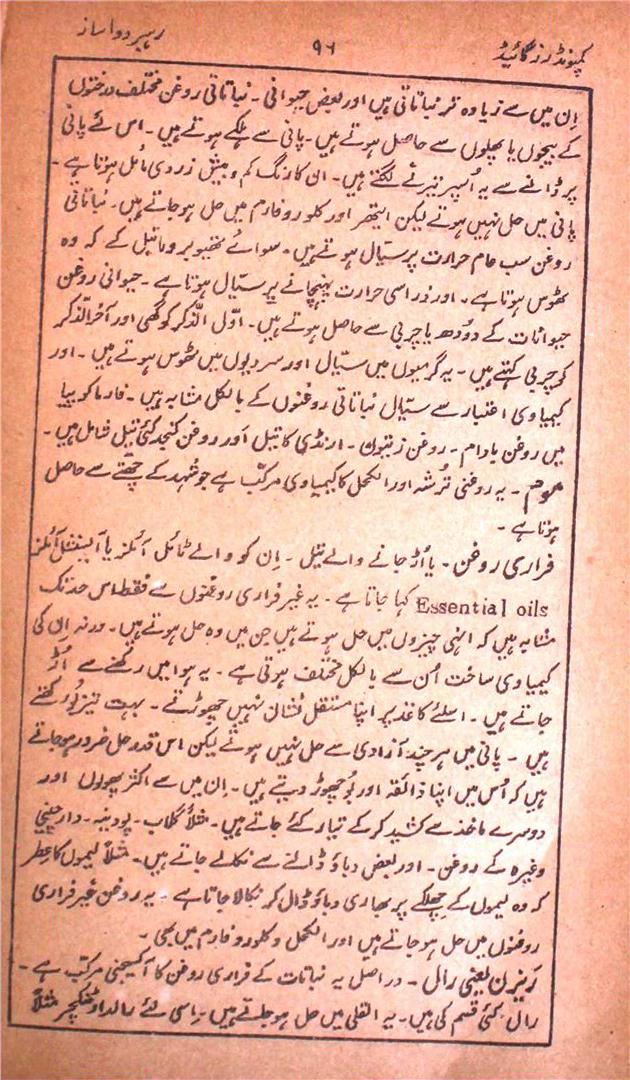 کمپونڈرز گائیڈ ۹۶ رہبر دواساز
اِن میں سے زیادہ تر نباتاتی ہیں اور بعض حیوانی۔ نباتاتی روغن مختلف درختوں
کے بیجوں یا پھلوں سے حاصل ہوتے ہیں۔ پانی سے ہلکے ہوتے ہیں۔ اس لئے پانی
پر ڈالنے سے یہ اُسپر تیرنے لگتے ہیں۔ ان کا رنگ کم و بیش زردی مائل ہوتا ہے۔
پانی میں حل نہیں ہوتے لیکن ایتھر اور کلوروفارم میں حل ہو جاتے ہیں۔ نباتاتی
روغن سب عام حرارت پر سیال ہوتے ہیں۔ سوائے تھیوبروماتیل کے کہ وہ
ٹھوس ہوتا ہے۔ اور ذرا سی حرارت پہنچانے پر سیال ہوتا ہے۔ حیوانی روغن
حیوانات کے دودھ یا چربی سے حاصل ہوتے ہیں۔ اوّل الذکر کو گھی اور آخر الذکر
کو چربی کہتے ہیں۔ یہ گرمیوں میں سیّال اور سردیوں میں ٹھوس ہوتے ہیں۔ اور
کیمیاوی اعتبار سے سیّال نباتاتی روغنوں کے بالکل مشابہ ہیں۔ فارماکوپیا
میں روغن بادام۔ روغن زیتون۔ ارنڈی کا تیل اور روغن کنجد کئی تیل شامل ہیں۔
موم۔ یہ روغنی تُرشہ اور الکحل کا کیمیاوی مرکّب ہے جو شہد کے چھتے سے حاصل
ہوتا ہے۔
فراری روغن۔ یا اُڑ جانے والے تیل۔ اِن کو والے ٹائل آئلز یا آیسنشل آئلز
Essential oils کہا جاتا ہے۔ یہ غیر فراری روغنوں سے فقط اس حد تک
مشابہ ہیں کہ انہی چیزوں میں حل ہوتے ہیں جن میں وہ حل ہوتے ہیں۔ ورنہ اِن کی
کیمیاوی ساخت اُن سے بالکل مختلف ہوتی ہے۔ یہ ہوا میں رکھنے سے اُڑ
جاتے ہیں۔ اسلئے کاغذ پر اپنا مستقل نشان نہیں چھوڑتے۔ بہت تیز بُو رکھتے
ہیں۔ پانی میں ہر چند آزادی سے حل نہیں ہوتے لیکن اس قدر حل ضرور ہو جاتے
ہیں کہ اُس میں اپنا ذائقہ اور بُو چھوڑ دیتے ہیں۔ اِن میں سے اکثر پھولوں اور
دوسرے ماخذ سے کشید کر کے تیار کئے جاتے ہیں۔ مثلاً گلاب۔ پودینہ۔ دارچینی
وغیرہ کے روغن۔ اور بعض دباؤ ڈالنے سے نکالے جاتے ہیں۔ مثلاً لیموں کا عطر
کہ وہ لیموں کے چھلکے پر بھاری دباؤ ڈال کر نکالا جاتا ہے۔ یہ روغن غیر فراری
روغنوں میں حل ہو جاتے ہیں اور الکحل و کلوروفارم میں بھی۔
رَیزِن یعنی رال۔ دراصل یہ نباتات کے فراری روغن کا آکسیجنی مرکب ہے۔
رال کئی قسم کی ہیں۔ یہ القلی میں حل ہو جاتے ہیں۔ اِسی لئے رالدار ٹنکچر مثلاً